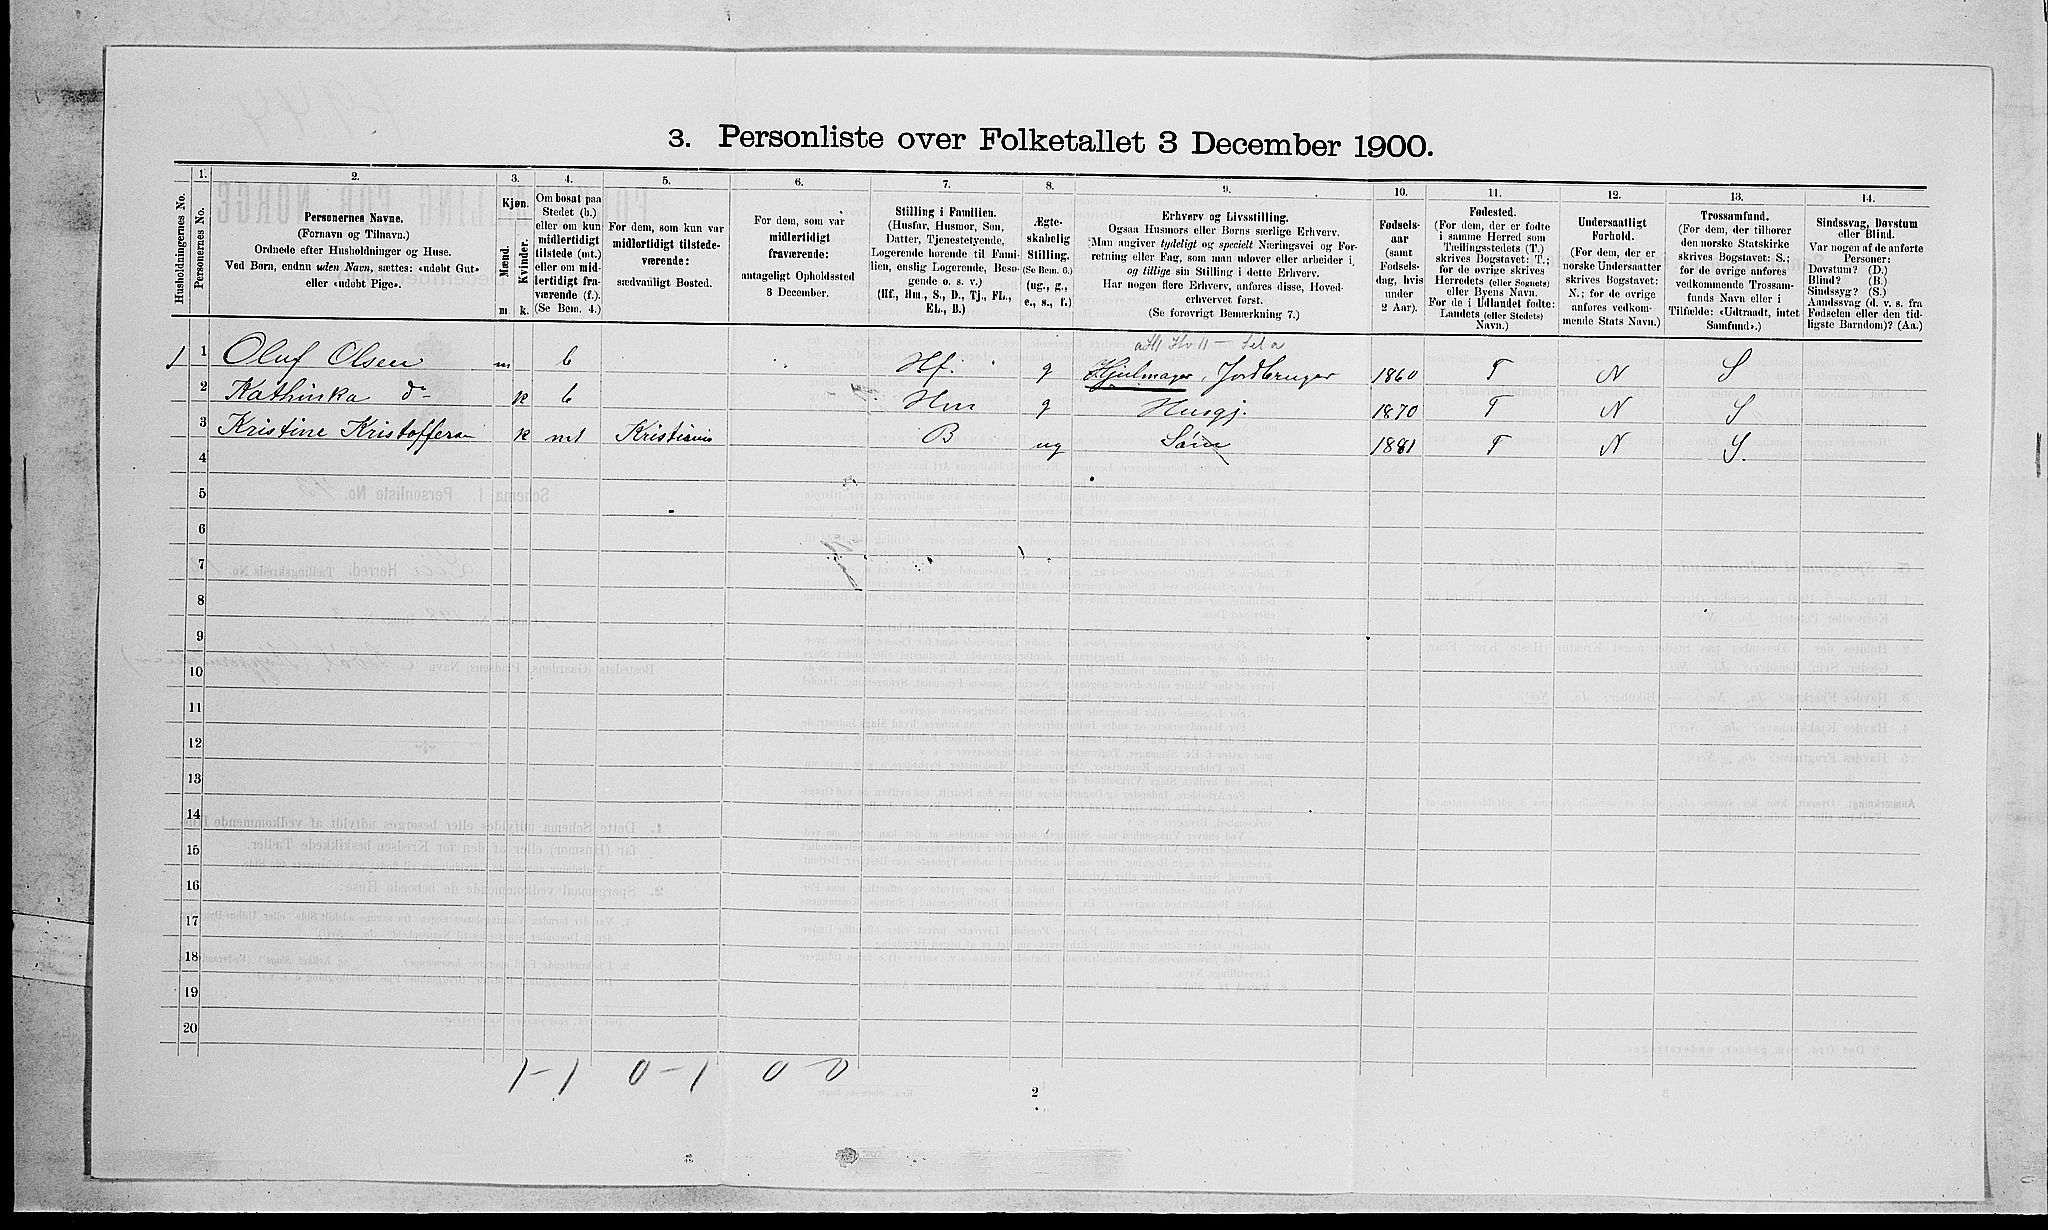 3. Personliste over Folketallet 3 December 1900.
1. 2. 3. 4. 5. 6. 7. 8. 9. 10. 11. 12. 13. 14.
Husholdningernes No.
Personernes No.
Personernes Navne.
(Fornavn og Tilnavn.)
Ordnede efter Husholdninger og Huse.
Ved Børn, endnu uden Navn, sættes: «udøbt Gut»
eller «udøbt Pige».
Kjøn.
Mænd.
Kvinder.
m. k.
Om bosat paa
Stedet (b.)
eller om kun
midlertidigt
tilstede (mt.)
eller om mid-
lertidigt fra-
værende (f.).
(Se Bem. 4.)
For dem, som kun var
midlertidigt tilstede-
værende:
sædvanligt Bosted.
For dem, som var
midlertidigt
fraværende:
antageligt Opholdssted
3 December.
Stilling i Familien.
(Husfar, Husmor, Søn,
Datter, Tjenestetyende,
Logerende hørende til Fami-
lien, enslig Logerende, Besø-
gende o. s. v.)
(Hf., Hm., S., D., Tj., FL.,
EL., B.)
Ægte-
skabelig
Stilling.
(Se Bem. 6.)
(ug., g.,
e., s., f.)
Erhverv og Livsstilling.
Ogsaa Husmors eller Børns særlige Erhverv.
Man angiver tydeligt og specielt Næringsvei og For-
retning eller Fag, som man udøver eller arbeider i,
og tillige sin Stilling i dette Erhverv.
Har nogen flere Erhverv, anføres disse, Hoved-
erhvervet først.
(Se forøvrigt Bemærkning 7.)
Fødsels-
aar
(samt
Fødsels-
dag, hvis
under
2 Aar).
Fødested.
(For dem, der er fødte
i samme Herred som
Tællingsstedets (T.)
skrives Bogstavet: T.;
for de øvrige skrives
Herredets (eller Sognets)
eller Byens Navn.
For de i Udlandet fødte:
Landets (eller Stedets)
Navn.)
Undersaatligt
Forhold.
(For dem, der er
norske Undersaatter
skrives Bogstavet:
N.; for de øvrige
anføres vedkom-
mende Stats Navn.)
Trossamfund.
(For dem, der tilhører
den norske Statskirke
skrives Bogstavet: S.;
for de øvrige anføres
vedkommende Trossam-
funds Navn eller i
Tilfælde: «Udtraadt, intet
Samfund».)
Sindssvag, Døvstum
eller Blind.
Var nogen af de anførte
Personer:
Døvstum? (D.)
Blind? (B.)
Sindssyg? (S.)
Aandssvag (d. v. s. fra
Fødselen eller den tid-
ligste Barndom)? (Aa.)
1 1 Oluf Olsen m b Hf. g Hjulmager, Jordbruger 1860 T N S
2 Kathinka do k b Hm g Husgj. 1870 T N S
3 Kristine Kristoffersen k mt Kristiania B ug 1881 T N S.
4
5
6
7
8
9
10
11
12
13
14
15
16
17
18
19
20
1-1 0-1 0 0
2